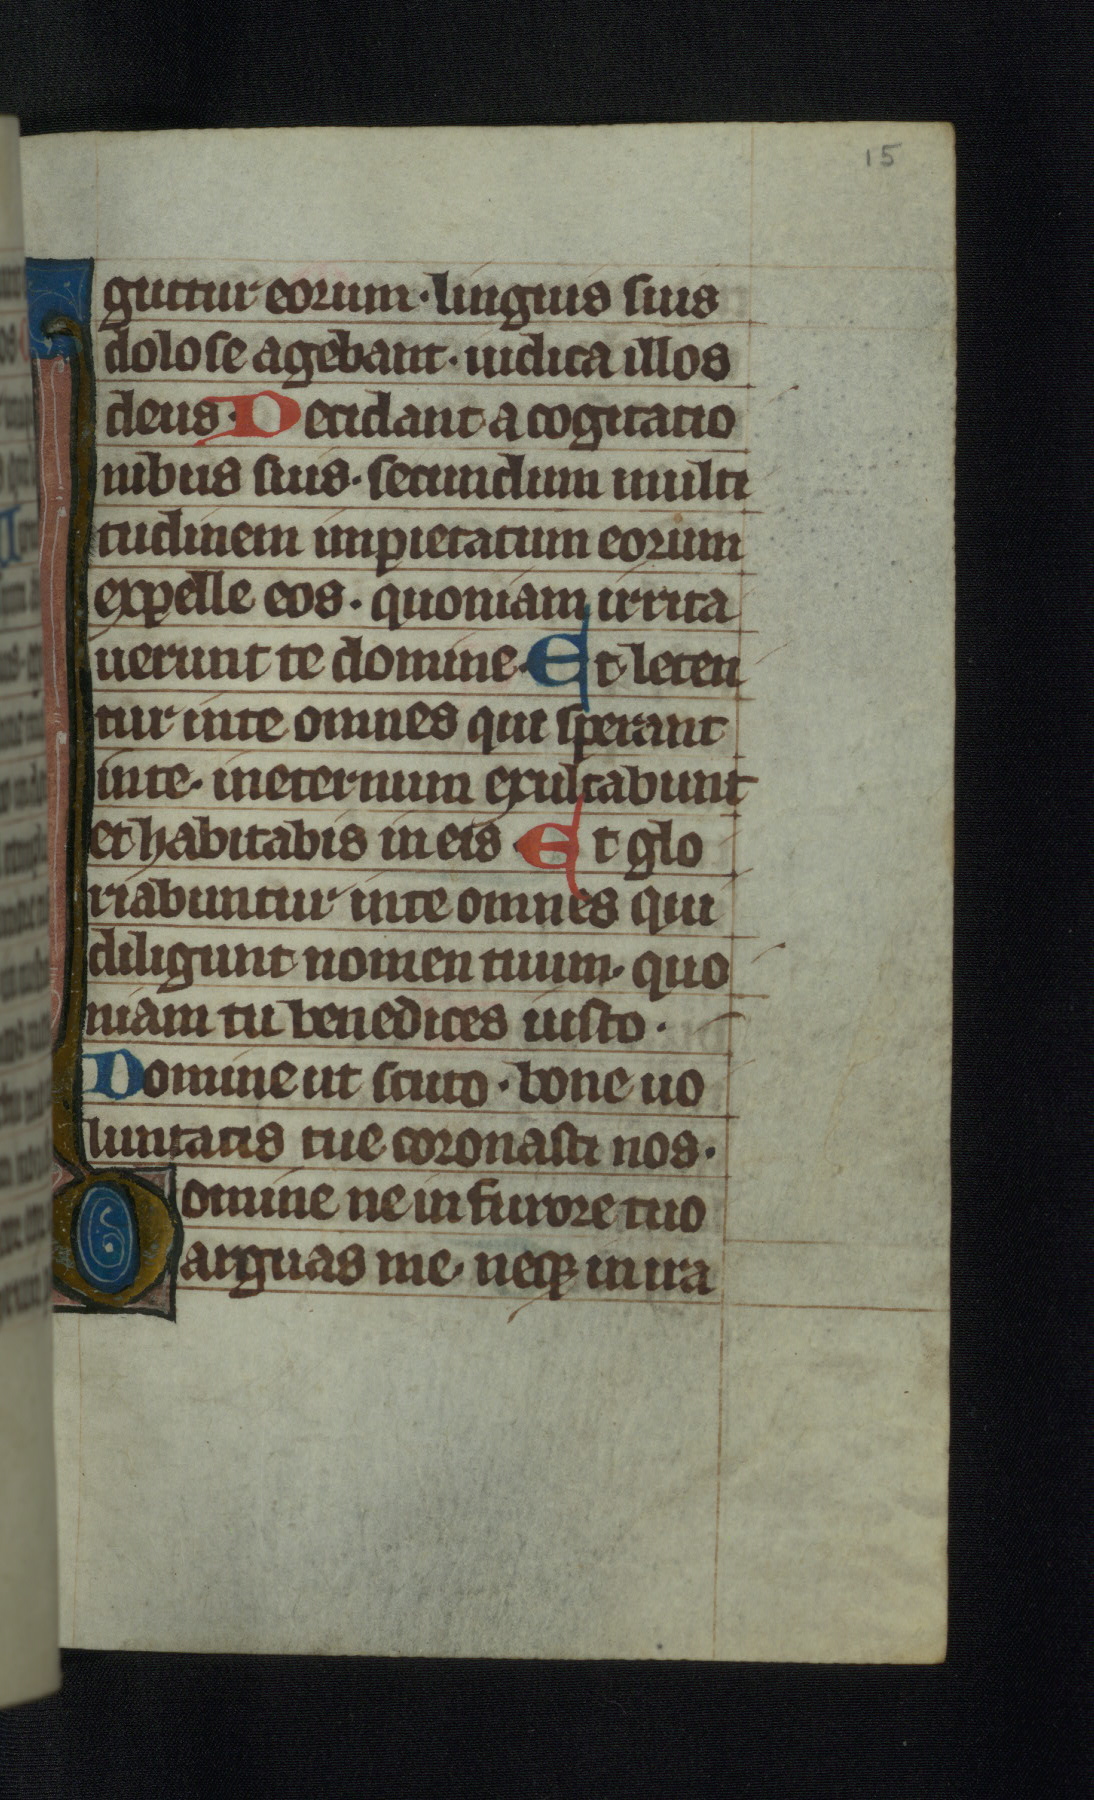 15
guttur eorum · linguis suis
dolose agebant · iudica illos
deus · Decidant a cogitatio
nibus suis · secundum multi
tudinem impietatum eorum
expelle eos · quoniam irrita
uerunt te domine · Et leten
tur in te omnes qui sperant
in te · in eternum exultabunt
et habitabis in eis · Et glo
riabuntur in te omnes qui
diligunt nomen tuum · quo
niam tu benedices iusto ·
Domine ut scuto · bone uo
luntatis tue coronasti nos ·
Domine ne in furore tuo
arguas me · neqꝫ in ira